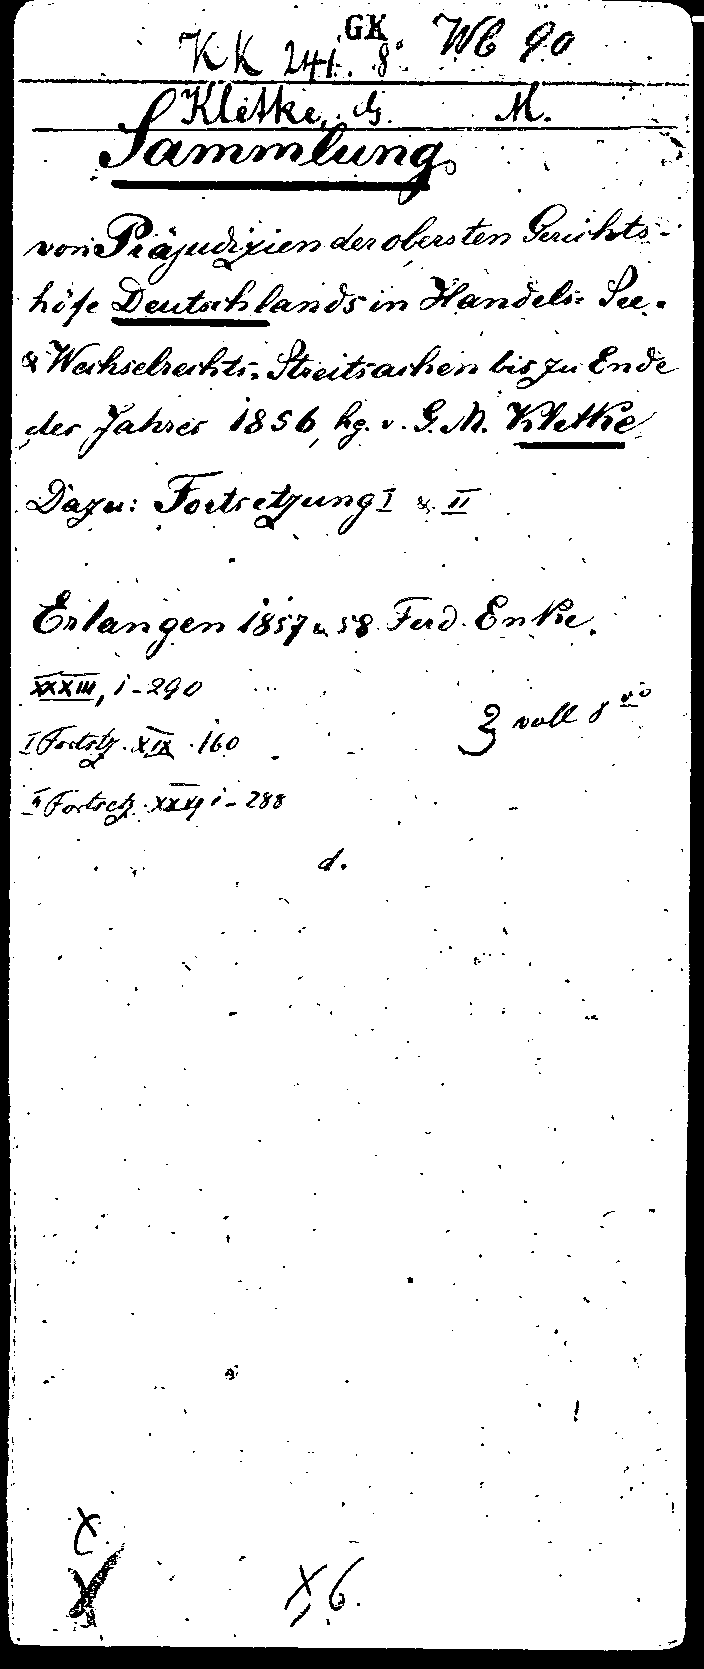 GK
KK 241. 8° Wb 90
Kletke, G. M.
Sammlung
von Präjudizien der obersten Gerichts-
höfe Deutschlands in Handels- See-
& Wechselrechts-Streitsachen bis zu Ende
des Jahres 1856, hg. v. G. M. Kletke
Dazu: Fortsetzung I & II
Erlangen 1857 u 58 Ferd. Enke.
XXXIII, 1-290
3 voll 8vo
I Fortstz. XIX . 160
II Fortsetz. XXXVI 1-288
d.
X 6.